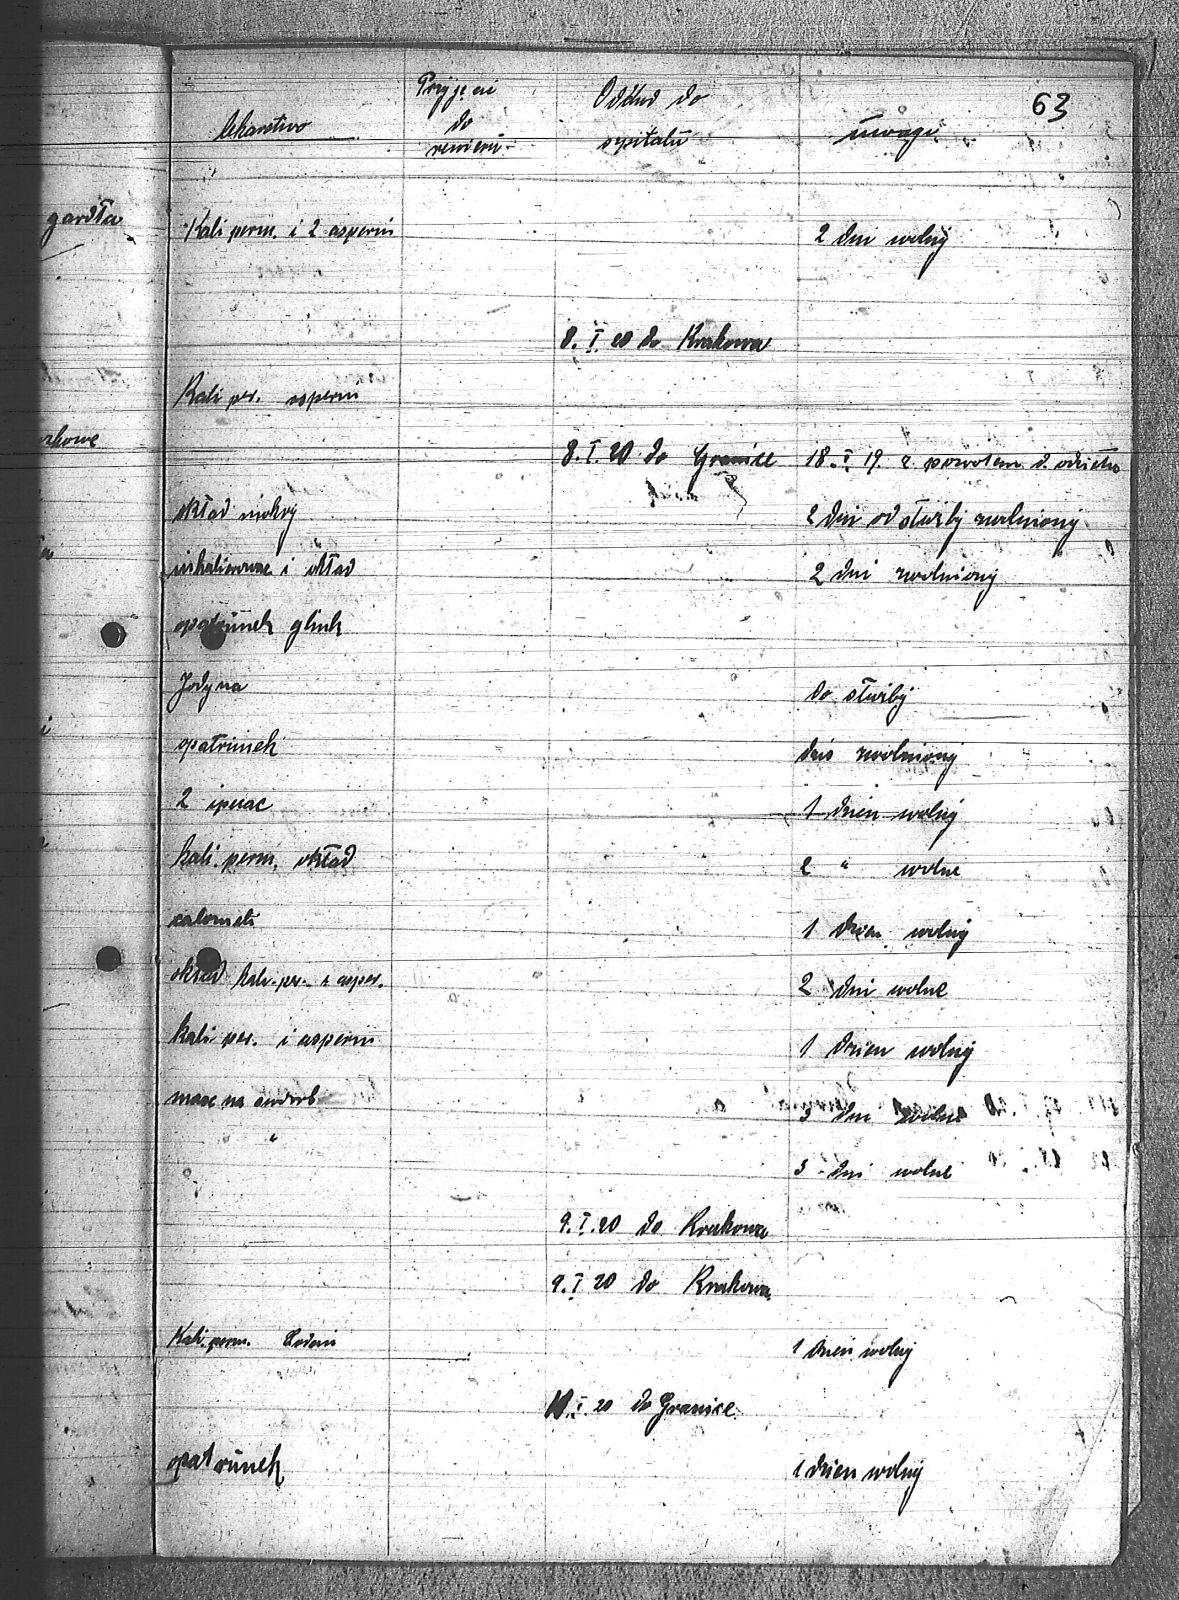 63
lekarstwo
Przyjęci do rewieru
Oddad do szpitalu
uwagi
gardła
Kali perm. i 2 asperin
2 dni wolny
8. I 20 do Krakowa
Kali per. asperin
8. I. 20 do Granice
18. I 19. z pozwolem d.
okład mokry
2 dni od służby zwolniony
i okład
2 dni zwolniony
opatrunek glink
Jodyna
do służby
opatrunek
dziś zwolniony
2 ipecac
1 dzien wolny
kali. perm. okład
2 " wolne
calomeli
1 dzien wolny
okład kali. per. i asper.
2 dni wolne
kali per. i asperin
1 dzien wolny
masc na swierb
3 dni wolne
"
3 dni wolne
9. I. 20 do Krakowa
9. I 20 do Krakowa
Kali. perm.
1 dzien wolny
10. I. 20 do Granice
opatrunek
1 dzien wolny